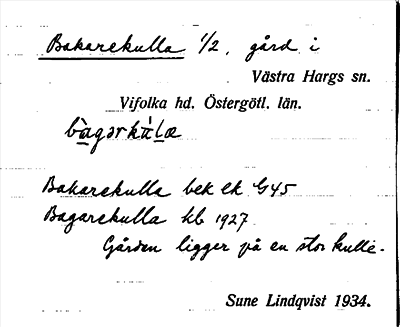 Bakarekulla 1/2, gård i
Västra Hargs sn.
Vifolka hd. Östergötl. län.
bàgərkùlæ
Bakarekulla bek ek G45
Bagarekulla kb 1927
Gården ligger på en stor kulle.
Sune Lindqvist 1934.